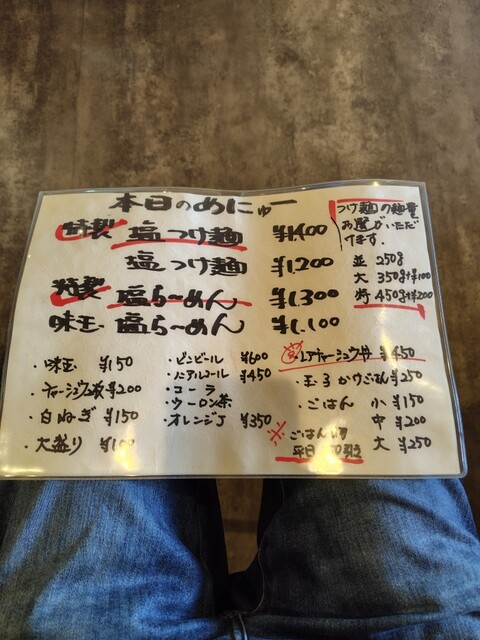 本日のめにゅー
特製 塩つけ麺 ¥1,400
塩つけ麺 ¥1,200
特製 塩らーめん ¥1,300
味玉 塩らーめん ¥1,100
つけ麺の麺量
お選びいただけ
ます。
並 250g
大 350g+¥100
特 450g+¥200
・味玉 ¥150
・チャーシュー2枚 ¥200
・白ねぎ ¥150
・大盛り
・ビンビール ¥600
・ノンアルコール ¥450
・コーラ
・ウーロン茶
・オレンジJ ¥350
レアチャーシュウ丼 ¥450
・玉子かけごはん ¥250
・ごはん 小 ¥150
中 ¥200
大 ¥250
※ごはん物
平日